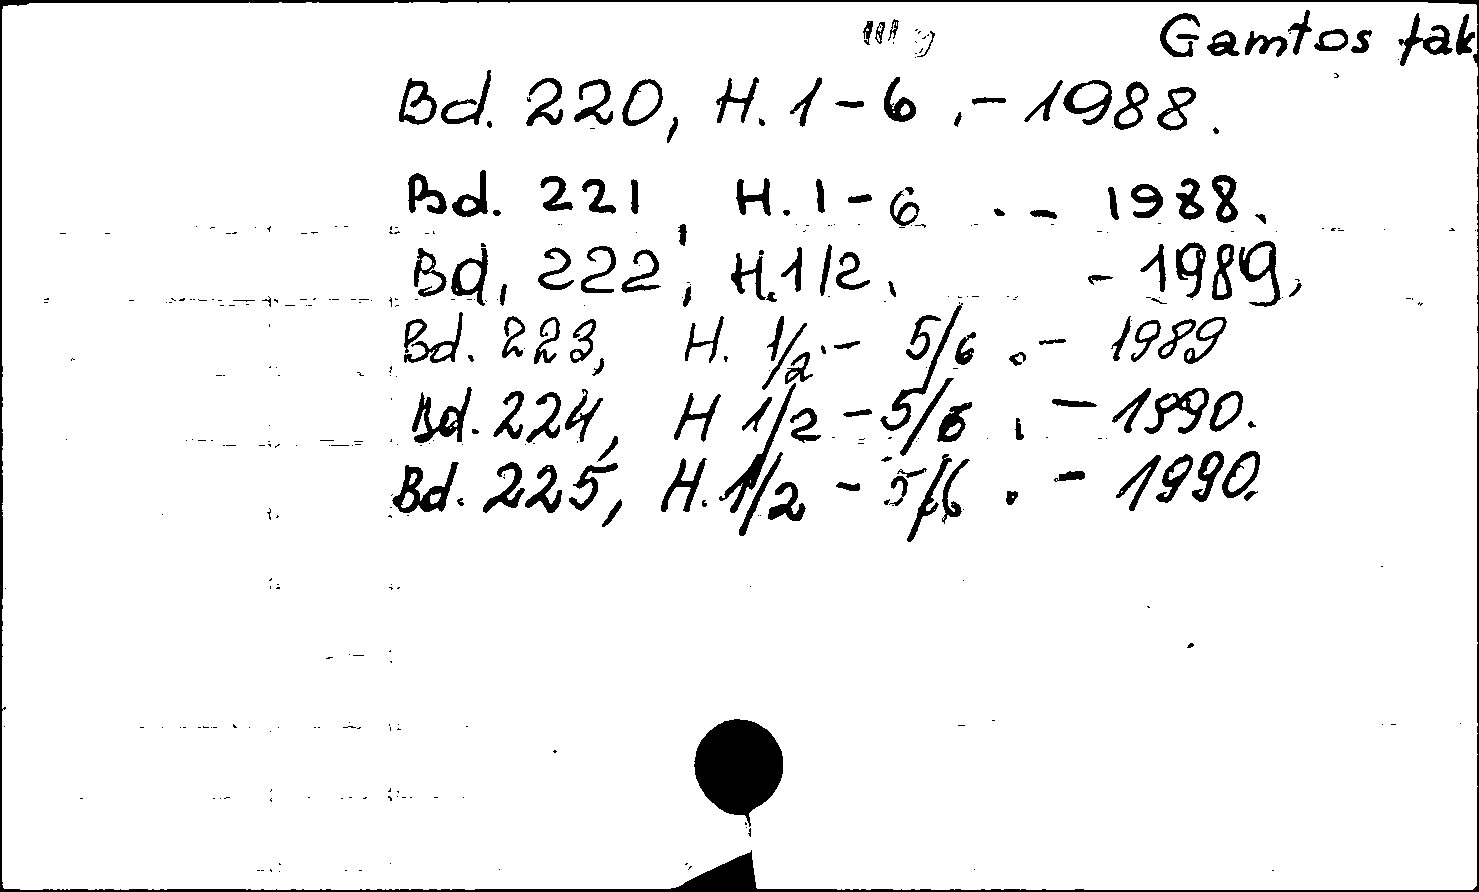 Gamtos fak.
Bd. 220, H. 1-6 .- 1988.
Bd. 221, H. 1-6 .- 1988.
Bd. 222, H. 1/2. - 1989.
Bd. 223, H. 1/2.- 5/6 .- 1989
Bd. 224, H 1/2 - 5/6 . - 1990.
Bd. 225, H. 1/2 - 5/6 . - 1990.